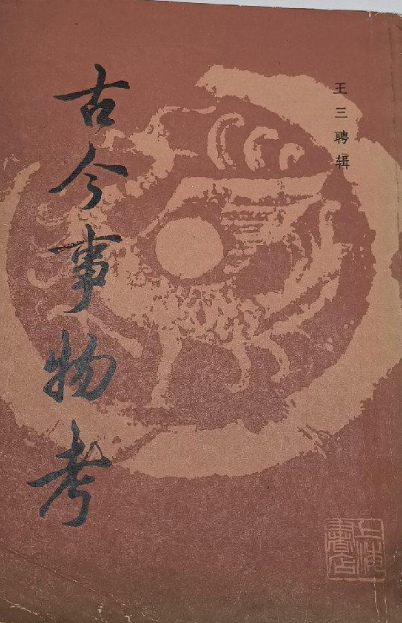 王三聘辑
古今事物考
上海書店